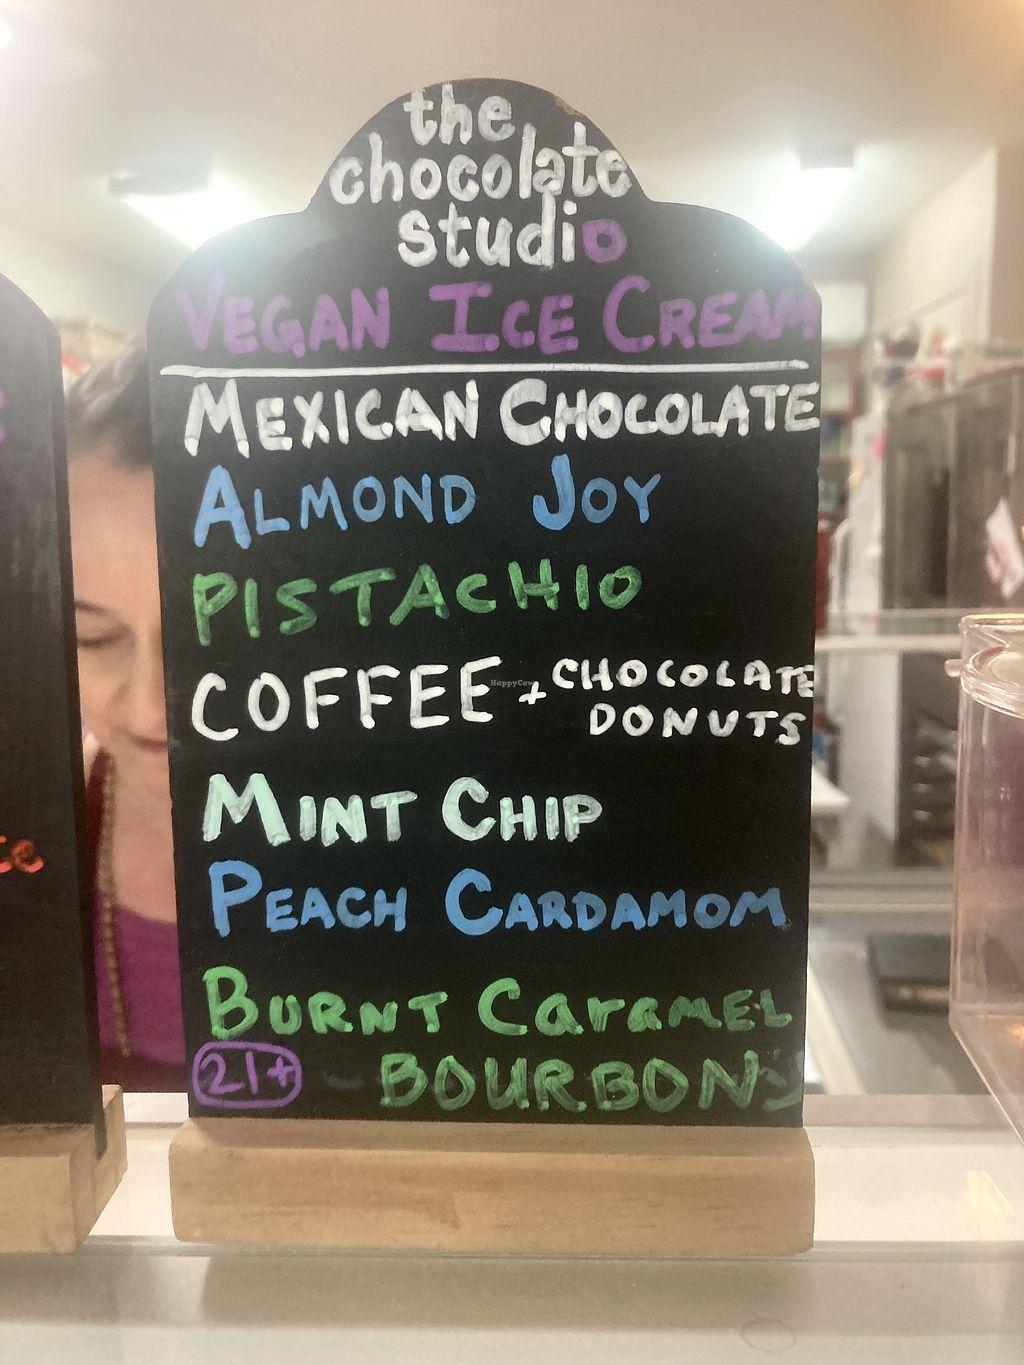 the
chocolate
studio
VEGAN ICE CREAM
MEXICAN CHOCOLATE
ALMOND JOY
PISTACHIO
COFFEE + CHOCOLATE
DONUTS
HappyCow
MINT CHIP
PEACH CARDAMOM
BURNT CARAMEL
21+ BOURBON